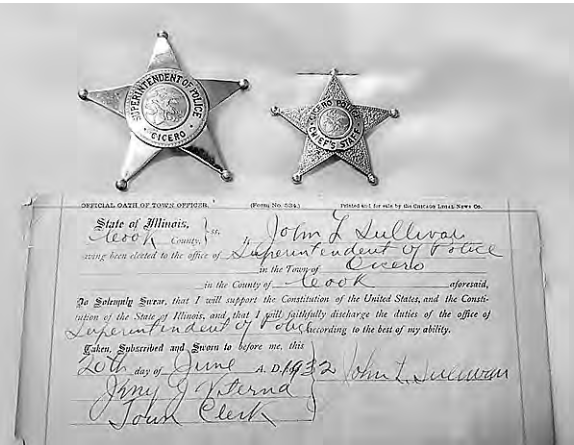 SUPERINTENDENT OF POLICE
CICERO
CICERO POLICE
CHIEF'S STAFF
OFFICIAL OATH OF TOWN OFFICER. (Form No. 534.) Printed and for sale by the CHICAGO LEGAL NEWS CO.
State of Illinois,
Cook County, } ss. I, John L Sullivan
having been elected to the office of Superintendent Of Police
in the Town of Cicero
in the County of Cook aforesaid,
Do Solemnly Swear, that I will support the Constitution of the United States, and the Consti-
tution of the State of Illinois, and that I will faithfully discharge the duties of the office of
Superintendent Of Police according to the best of my ability.
Taken, Subscribed and Sworn to before me, this
20th day of June A. D. 1932 John L. Sullivan
Jerry J Viterna
Town Clerk